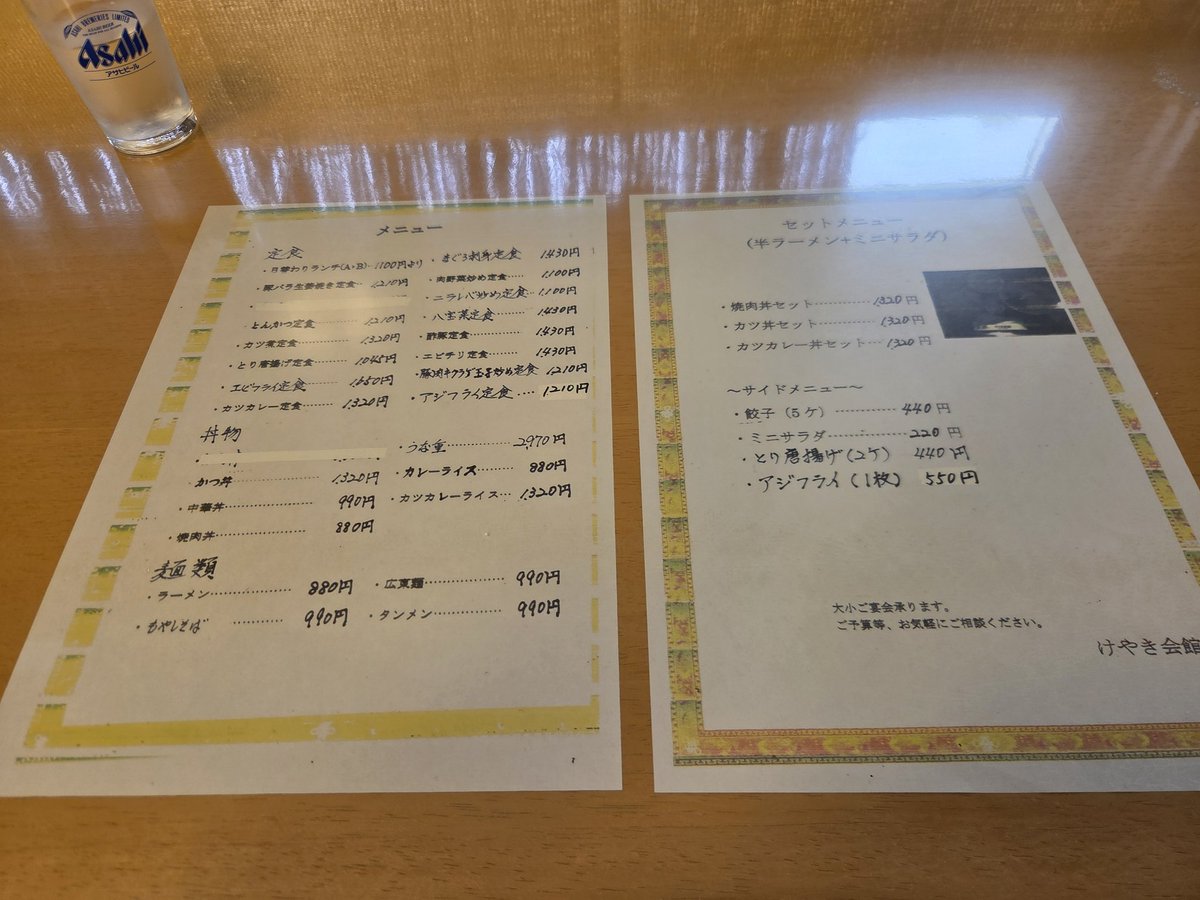 ASAHI BREWERIES LIMITED
Asahi
アサヒビール
メニュー
定食
・日替わりランチ(A・B)…1100円より
・豚バラ生姜焼き定食…1,210円
・とんかつ定食 1,210円
・カツ煮定食 1,320円
・とり唐揚げ定食 1,045円
・エビフライ定食 1,650円
・カツカレー定食 1,320円
・まぐろ刺身定食 1,430円
・肉野菜炒め定食 1,100円
・ニラレバ炒め定食 1,100円
・八宝菜定食 1,430円
・酢豚定食 1,430円
・エビチリ定食 1,430円
・豚肉キクラゲ玉子炒め定食 1,210円
・アジフライ定食 1,210円
丼物
・かつ丼 1,320円
・中華丼 990円
・焼肉丼 880円
・うな重 2,970円
・カレーライス 880円
・カツカレーライス 1,320円
麺類
・ラーメン 880円
・もやしそば 990円
・広東麺 990円
・タンメン 990円
セットメニュー
(半ラーメン+ミニサラダ)
・焼肉丼セット 1,320円
・カツ丼セット 1,320円
・カツカレー丼セット 1,320円
～サイドメニュー～
・餃子(5ケ) 440円
・ミニサラダ 220円
・とり唐揚げ(2ケ) 440円
・アジフライ(1枚) 550円
大小ご宴会承ります。
ご予算等、お気軽にご相談ください。
けやき会館